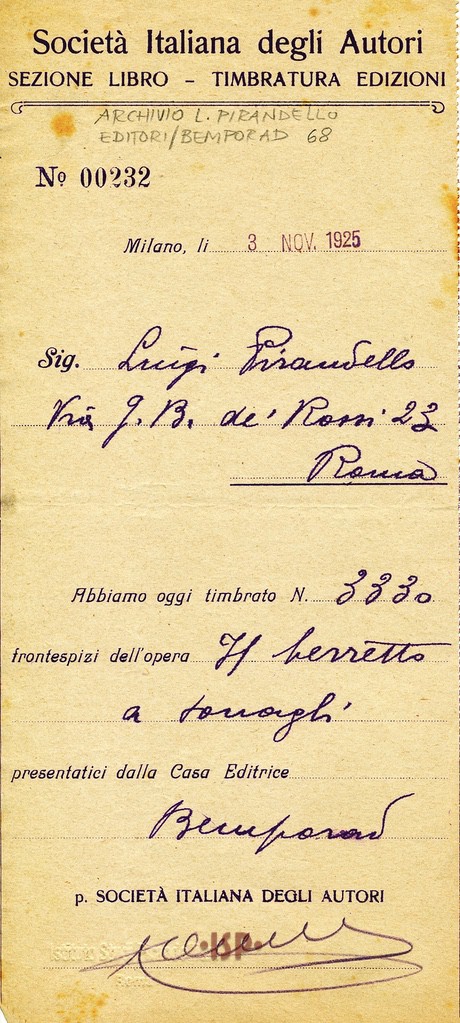 Società Italiana degli Autori
SEZIONE LIBRO – TIMBRATURA EDIZIONI
ARCHIVIO L. PIRANDELLO
EDITORI/BEMPORAD 68
Nº 00232
Milano, li 3 NOV. 1925
Sig. Luigi Pirandello
Via G. B. de' Rossi 23
Roma
Abbiamo oggi timbrato N. 3330
frontespizi dell'opera Il berretto
a sonagli
presentatici dalla Casa Editrice
Bemporad
p. SOCIETÀ ITALIANA DEGLI AUTORI
·ISP·